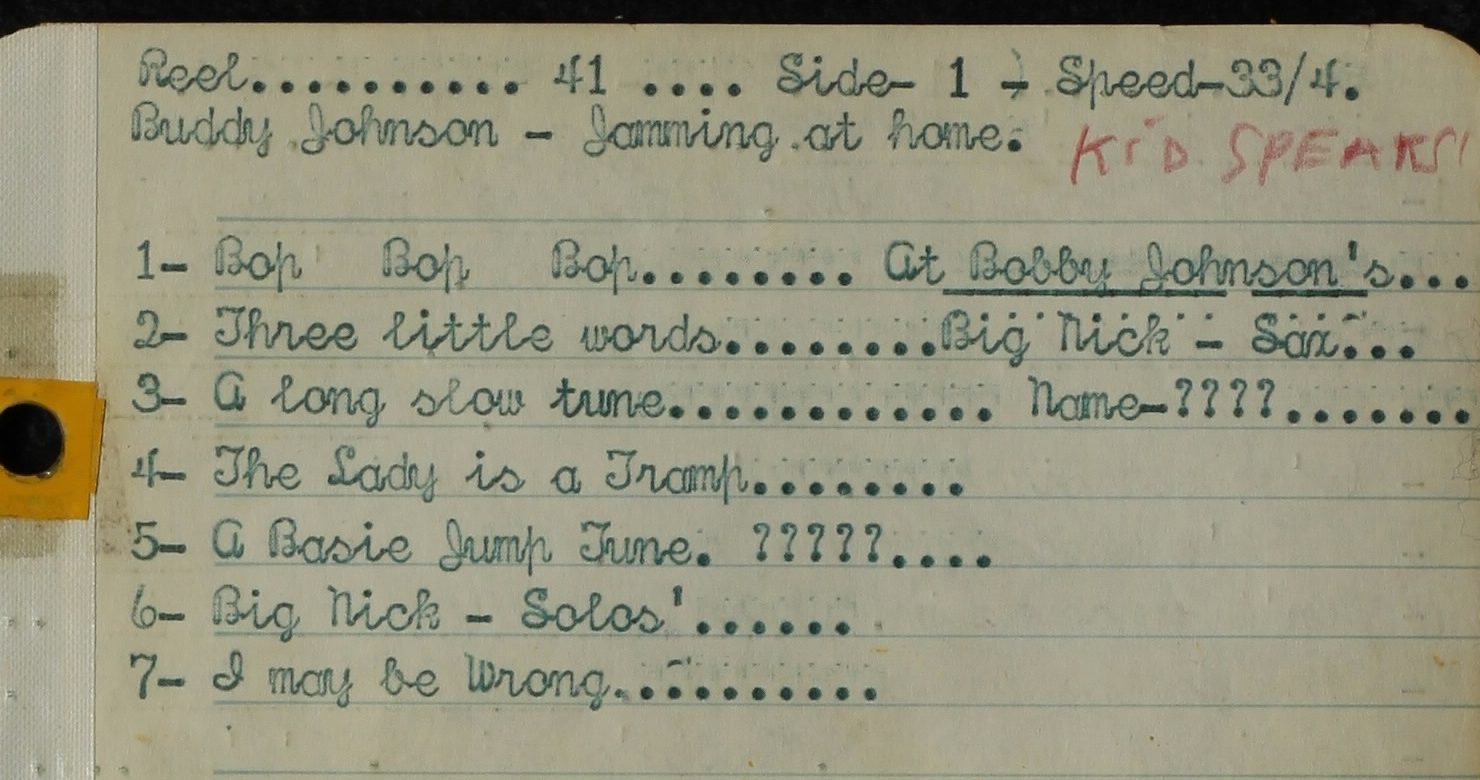 Reel........... 41 .... Side- 1 - Speed-33/4.
Buddy Johnson - Jamming at home. KiD SPEAKS!
1- Bop Bop Bop......... At Bobby Johnson's...
2- Three little words.........Big Nick - Sax...
3- A long slow tune.............. Name-????.......
4- The Lady is a Tramp........
5- A Basie Jump Tune. ?????....
6- Big Nick - Solos'......
7- I may be Wrong...........